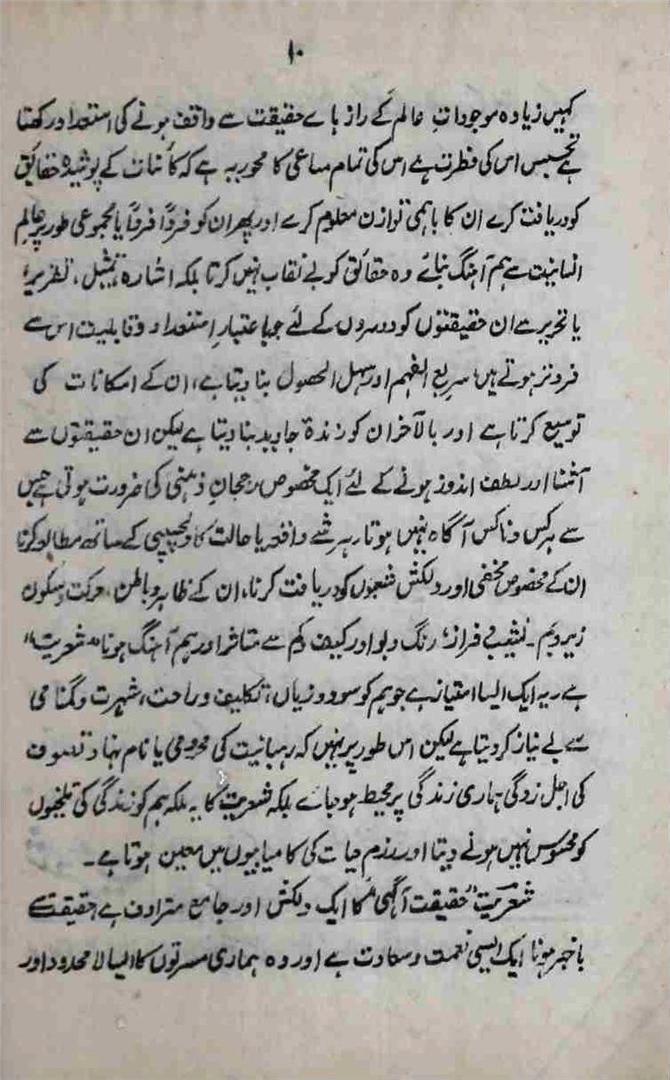 ۱۰
کہیں زیادہ موجوداتِ عالم کے راز ہائے حقیقت سے واقف ہونے کی استعداد رکھتا
ہے تجسس اس کی فطرت ہے اس کی تمام مساعی کا محور یہ ہے کہ کائنات کے پوشیدہ حقائق
کو دریافت کرے ان کا باہمی توازن معلوم کرے اور پھر ان کو فرداً فرداً یا مجموعی طور پر عالمِ
انسانیت سے ہم آہنگ بنائے وہ حقائق کو بے نقاب نہیں کرتا بلکہ اشارہ، تمثیل، تقریر
یا تحریر سے ان حقیقتوں کو دوسروں کے لئے جو باعتبارِ استعداد و قابلیت اس سے
فروتر ہوتے ہیں سریع الفہم اور سہل الحصول بنا دیتا ہے، ان کے امکانات کی
توسیع کرتا ہے اور بالآخر ان کو زندۂ جاوید بنا دیتا ہے لیکن ان حقیقتوں سے
آشنا اور لطف اندوز ہونے کے لئے ایک مخصوص رجحانِ ذہنی کی ضرورت ہوتی ہے جس
سے ہر کس و ناکس آگاہ نہیں ہوتا، ہر شے واقعہ یا حالت کا دلچسپی کے ساتھ مطالعہ کرنا
ان کے مخصوص مخفی اور دلکش شعبوں کو دریافت کرنا، ان کے ظاہر و باطن، حرکت و سکون
زیر و بم۔ نشیب و فراز، رنگ و بو اور کیف و کم سے متاثر اور ہم آہنگ ہونا "شعریت"
ہے، یہ ایک ایسا امتیاز ہے جو ہم کو سود و زیاں، تکلیف و راحت، شہرت و گمنامی
سے بے نیاز کر دیتا ہے لیکن اس طور پر نہیں کہ رہبانیت کی محرومی یا نام نہاد تصوف
کی اجل زدگی ہماری زندگی پر محیط ہو جائے بلکہ شعریت کا یہ ملکہ ہم کو زندگی کی تلخیوں
کو محسوس نہیں ہونے دیتا اور رزمِ حیات کی کامیابیوں میں معین ہوتا ہے۔
شعریت "حقیقت آگہی" کا ایک دلکش اور جامع مترادف ہے حقیقت سے
باخبر ہونا ایک ایسی نعمت و سعادت ہے اور وہ ہماری مسرتوں کا ایسا لامحدود اور